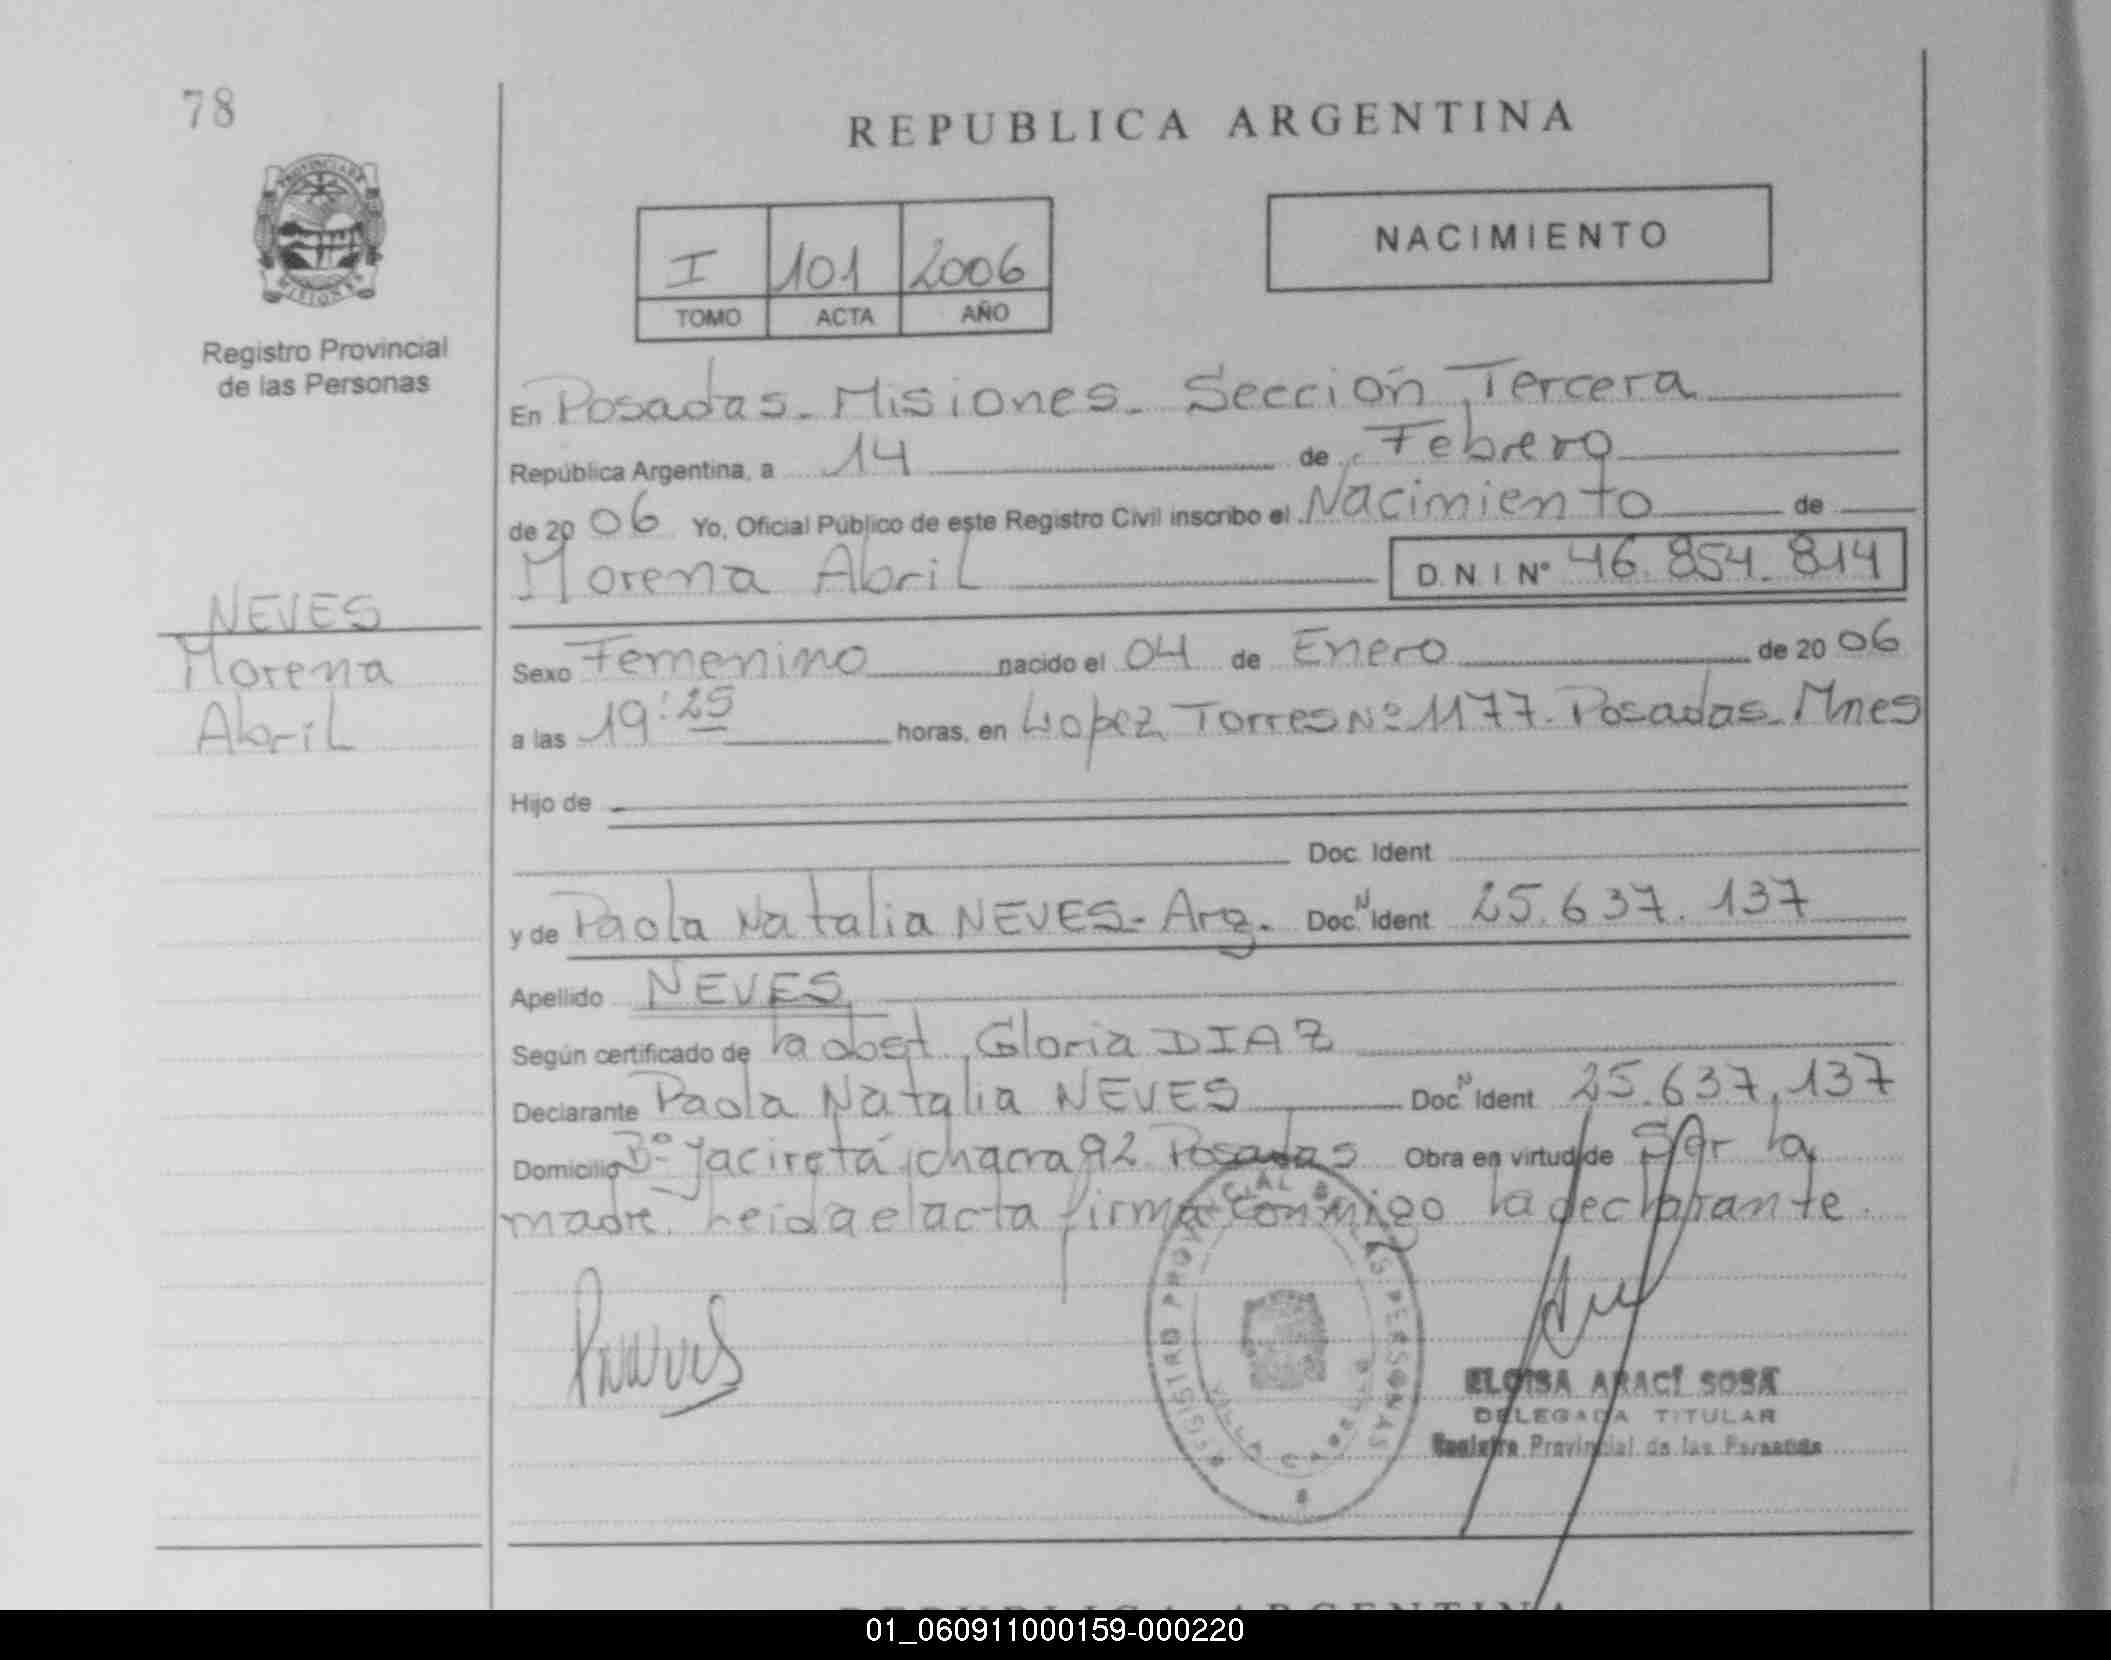 78
REPUBLICA ARGENTINA
PROVINCIA DE
MISIONES
Registro Provincial
de las Personas
I 101 2006
TOMO ACTA AÑO
NACIMIENTO
En Posadas - Misiones - Sección Tercera
República Argentina, a 14 de Febrero
de 2006 Yo, Oficial Público de este Registro Civil inscribo el Nacimiento de
Morena Abril D.N.I Nº 46.854.814
NEVES
Morena
Abril
Sexo Femenino nacido el 04 de Enero de 2006
a las 19:25 horas, en Lopez Torres Nº 1177. Posadas. Mnes
Hijo de
Doc. Ident
y de Paola Natalia NEVES - Arg. Doc. N Ident 25.637.137
Apellido NEVES
Según certificado de la obst. Gloria DIAZ
Declarante Paola Natalia NEVES Doc N Ident 25.637.137
Domicilio Bº Yaciretá, chacra 92 Posadas Obra en virtud de Ser la
madre. Leida el acta firma conmigo la declarante.
REGISTRO PROVINCIAL DE LAS PERSONAS
ELOISA ARACÍ SOSA
DELEGADA TITULAR
Registro Provincial de las Personas
REPUBLICA ARGENTINA
01_060911000159-000220